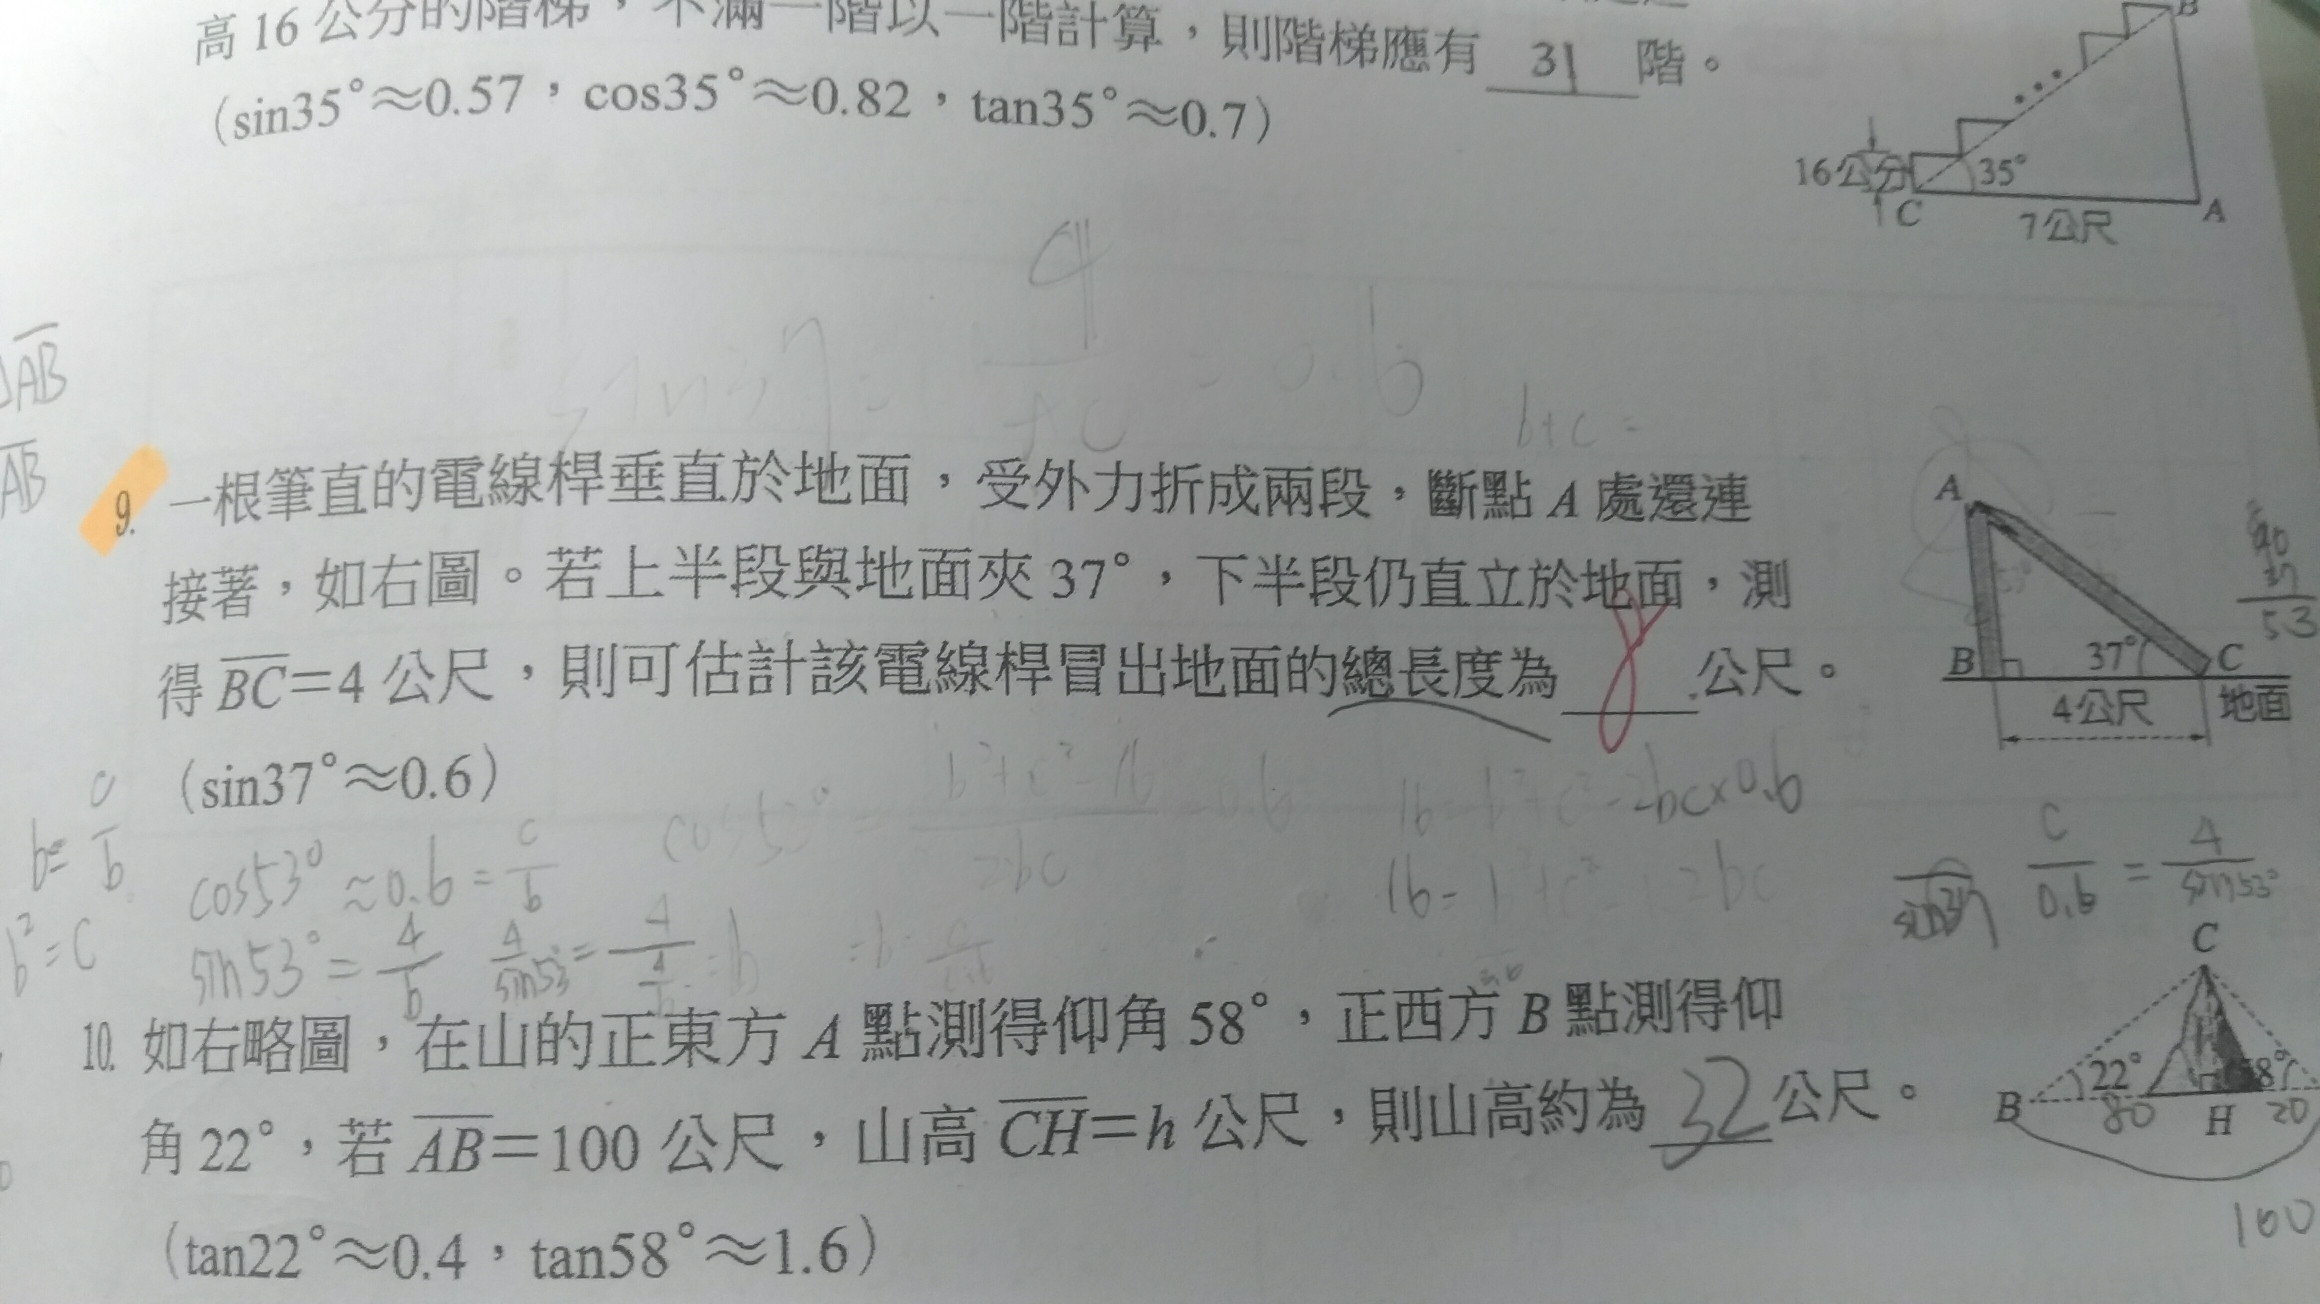 高16公分的階梯，不滿一階以一階計算，則階梯應有 31 階。
(sin35°≈0.57，cos35°≈0.82，tan35°≈0.7)
B
16公分
35°
C
7公尺
A
AB
AB
= 0.6
b+c =
9. 一根筆直的電線桿垂直於地面，受外力折成兩段，斷點 A 處還連
接著，如右圖。若上半段與地面夾37°，下半段仍直立於地面，測
得BC=4公尺，則可估計該電線桿冒出地面的總長度為 8 公尺。
(sin37°≈0.6)
A
B
37°
C
4公尺
地面
90
37
53
cos53° = b²+c²-16 / 2bc = 0.6
16 = b²+c²-2bc×0.6
cos53°≈0.6 = c/b
16 =
c/0.6 = 4/sin53°
b²=c
sin53° = 4/b
4/sin53° = 4/(4/b) = b
10. 如右略圖，在山的正東方 A 點測得仰角58°，正西方 B 點測得仰
角22°，若 AB=100 公尺，山高 CH=h 公尺，則山高約為 32 公尺。
(tan22°≈0.4，tan58°≈1.6)
C
22°
58°
B
80
H
20
100